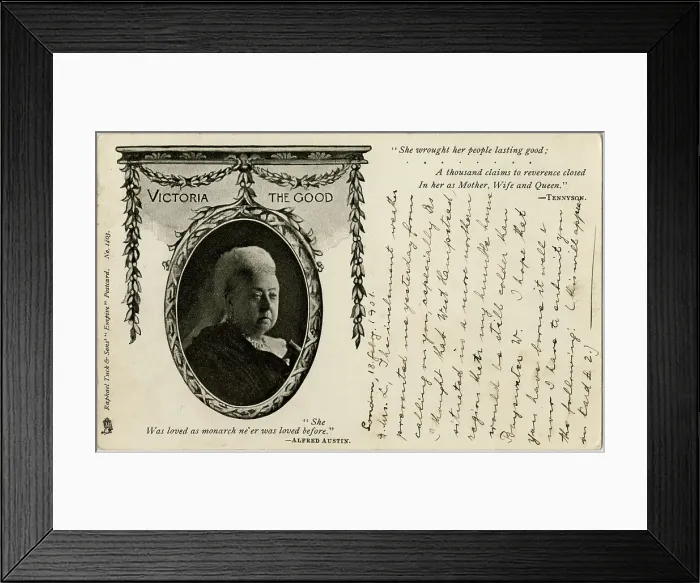 VICTORIA THE GOOD
"She wrought her people lasting good;
A thousand claims to reverence closed
In her as Mother, Wife and Queen."
—TENNYSON.
"She
Was loved as monarch ne'er was loved before."
—ALFRED AUSTIN.
Raphael Tuck & Sons' "Empire" Postcard. No. 1403.
London, 18 Feb, 1901.
The inclement weather
prevented me yesterday from
calling on you, especially as
I thought that West Hampstead
situated in a more northern
region than my humble home
would be still colder than
Bayswater W. I hope that
you have borne it well &
now I have to submit you
the following: (this will appear
on card № 2.)